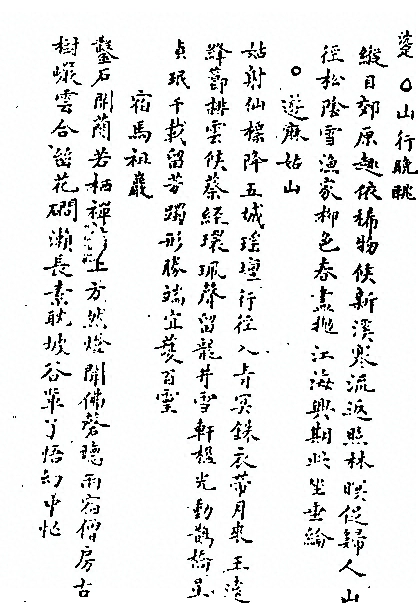 ○山行晚眺
縱目郊原趣依稀物候新溪寒流返照林暝促歸人山
徑松陰雪漁家柳色春盡拋江海興期此坐垂綸
○遊麻姑山
姑射仙標降五城瑤壇行徑入青冥銖衣帶月來王遠
絳節排雲候蔡經環珮聲留龍井雪軒楹光動鵲橋星
貞珉千載留芳躅形勝端宜護百靈
宿馬祖巖
鑿石開蘭若栖禪上方然燈開佛磬聽雨宿僧房古
樹巖雲合留花磵瀨長素耽坡谷輩了悟幻中忙